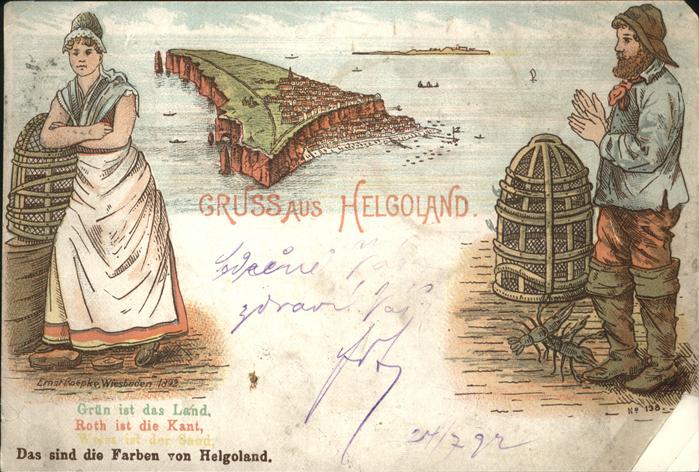 GRUSS AUS HELGOLAND.
srdečně
zdraví Váš
24/7 97
Ernst Roepke, Wiesbaden 1892
No 138.
Grün ist das Land,
Roth ist die Kant,
Weiss ist der Sand,
Das sind die Farben von Helgoland.